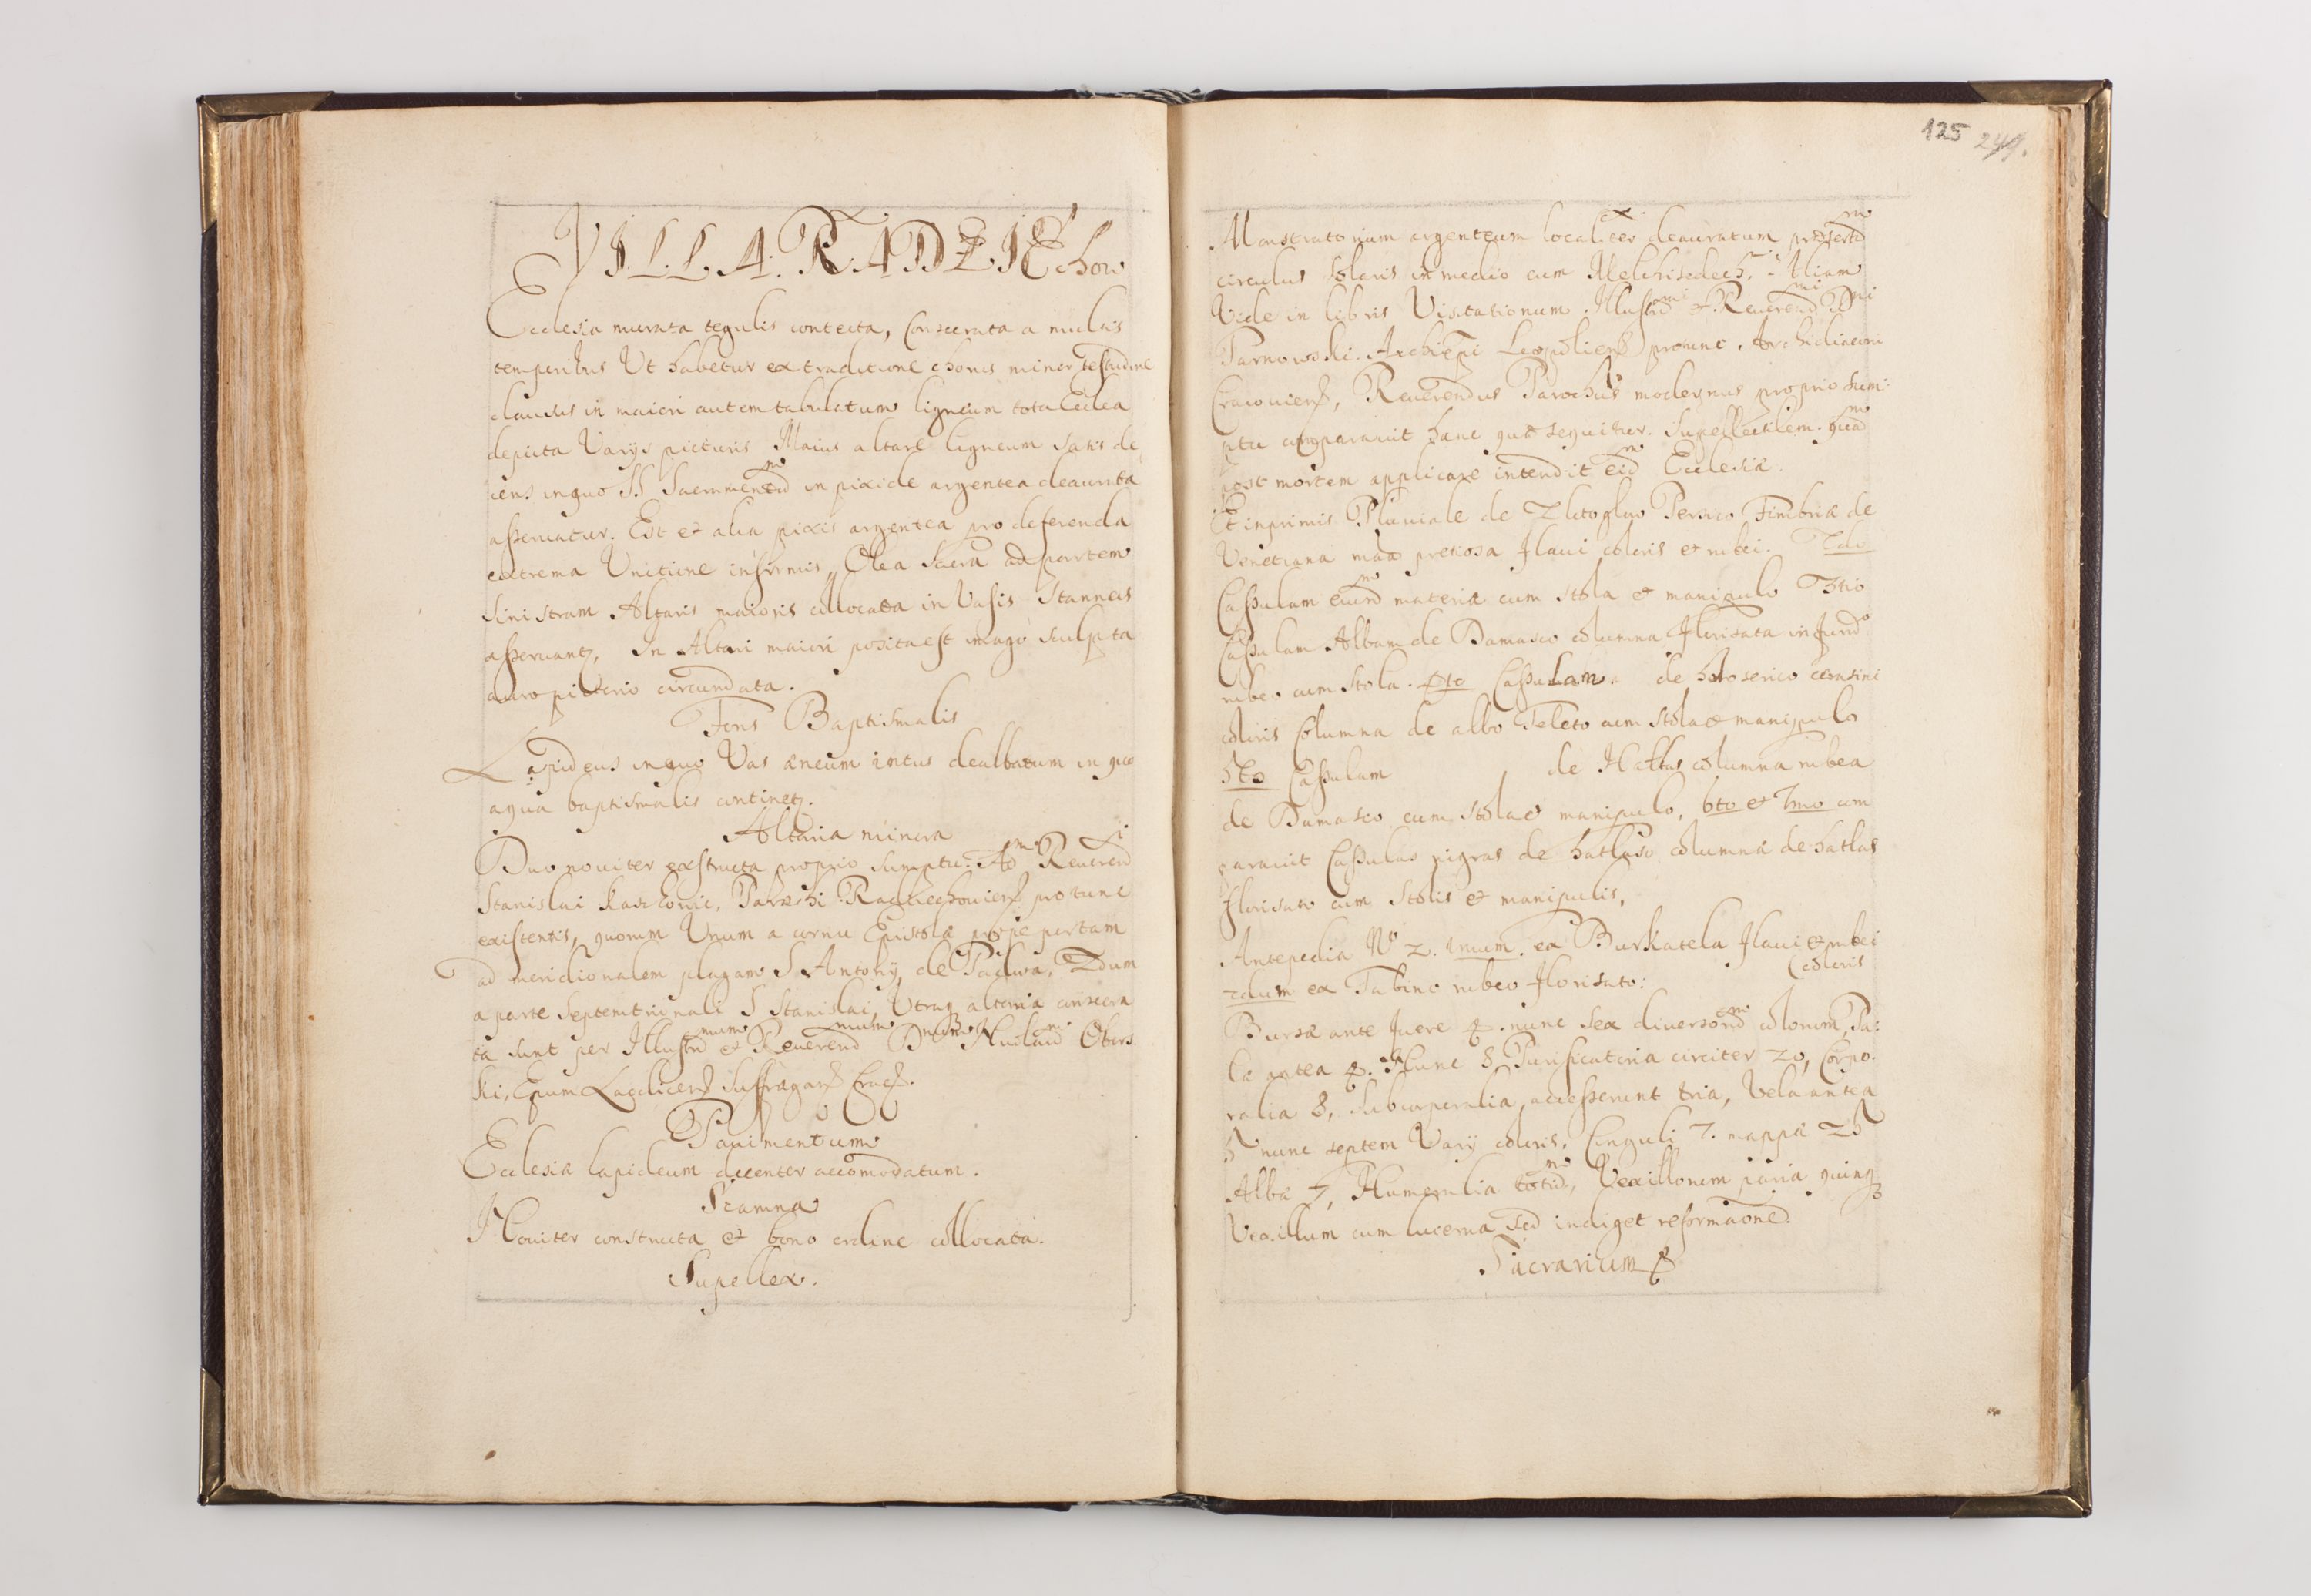 VILLA RADZIEchow
Ecclesia murata tegulis contecta, Consecrata a multis
temporibus Ut habetur ex traditione chorus minor testudine
clausus in maiori autem tabulatum ligneum tota Ecclea
depicta Varijs picturis Maius altare ligneum satis de
cens in quo SS Sacramentũ in pixide argentea deaurata
asseruatur. Est et alia pixis argentea pro deferenda
extrema Unctione infirmis, Olea Sacra ad partem
sinistram Altaris maioris collocata in Vasis Stanneis
asseruantʒ, In Altari maiori posita est imago sculpta
auro pictorio circumdata.
Fons Baptismalis
Lapideus in quo Vas æneum intus dealbatum in quo
aqua baptismalis continetʒ.
Altaria minora
Duo noviter exstructa proprio sumptu Adm Reverendi
Stanislai Parochi Radziechoviens pro tunc
existentis, quorum Unum a cornu Epistolæ prope portam
ad meridionalem plagam S Antonij de Padua, 2dum
a parte Septemtrionali S Stanislai, Utraqʒ altaria consecra
ta sunt per Illustrmum et Reverendmum Dnum Nicolaum Obors
ki, Epum Laodicens Suffragans Crac.
Pavimentum
Ecclesiæ lapideum decenter accomodatum.
Scamna
Noviter constructa et bono ordine collocata.
Supellex.
125 249.
Monstratorium argenteum localiter deauratum præsertim
circulus solaris in medio cum Melchisedech, Aliam
Vide in libris Visitationum Illustrmi et Reverendmi Dni
Tarnowski Archiepi Leopoliens pro nunc Archidiaconi
Cracoviens, Reverendus Parochus modernus proprio sum-
ptu comparavit hanc quæ sequitur Supellectilem quam
post mortem applicare intendit eidm Ecclesiæ.
Et inprimis Pluviale de Zlotogluo Persico Fimbriæ de
Venetiana max pretiosa flavi coloris et rubei. 2do
Cassulam eiusdm materiæ cum stola et manipulo 3tio
Cassulam Albam de Damasco columna florisata in fundo
rubeo cum Stola. 4to Cassulam de holoserico cerasini
coloris Columna de albo Teleto cum stola et manipulo
5to Cassulam de Hatlas columna rubea
de Damasco cum stola et manipulo, 6to et 7mo com
paravit Cassulas nigras de hatlaso columna de hatlas
florisato cum Stolis et manipulis,
Antepedia No 2. 1mum. ex Burkatela flavi et rubei
coloris
2dum ex Tabino rubeo florisato:
Bursæ ante fuere 4. nunc sex diversorum colorum, Pa:
læ antea 4. Nunc 8 Purificatoria circiter 20, Corpo.
ralia 8, Subcorporalia accesserunt tria, Vela antea
5 nunc septem Varij coloris, Cinguli 7. mappæ 25
Albæ 7, Humeralia totidm, Vexillorum paria quinqʒ
Vexillum cum lucerna sed indiget reformaone.
Sacrarium